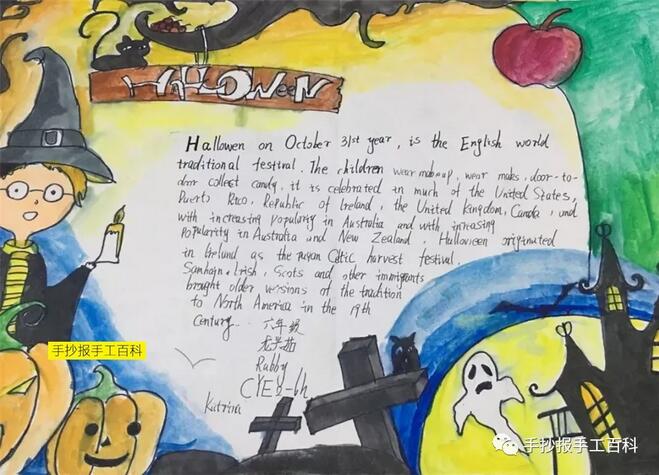 HALLOWEEN
Hallowen on October 31st year, is the English world
traditional festival. The children wear makeup, wear maks, door-to-
door collect candy, it is celebrated in much of the United States,
Puerto Rico, Republic of Ireland, the United kingdom, Canda, and
with increasing popularity in Australia and with increasing
Popularity in Australia and New Zealand, Hulloween originated
in Ireland as the pagan Celtic harvest festival.
Samhain, Irish, Scots and other immigrants
brought older versions of the tradition
to North America in the 19th
century.
六年级
Rabby
Katrina
手抄报手工百科
手抄报手工百科